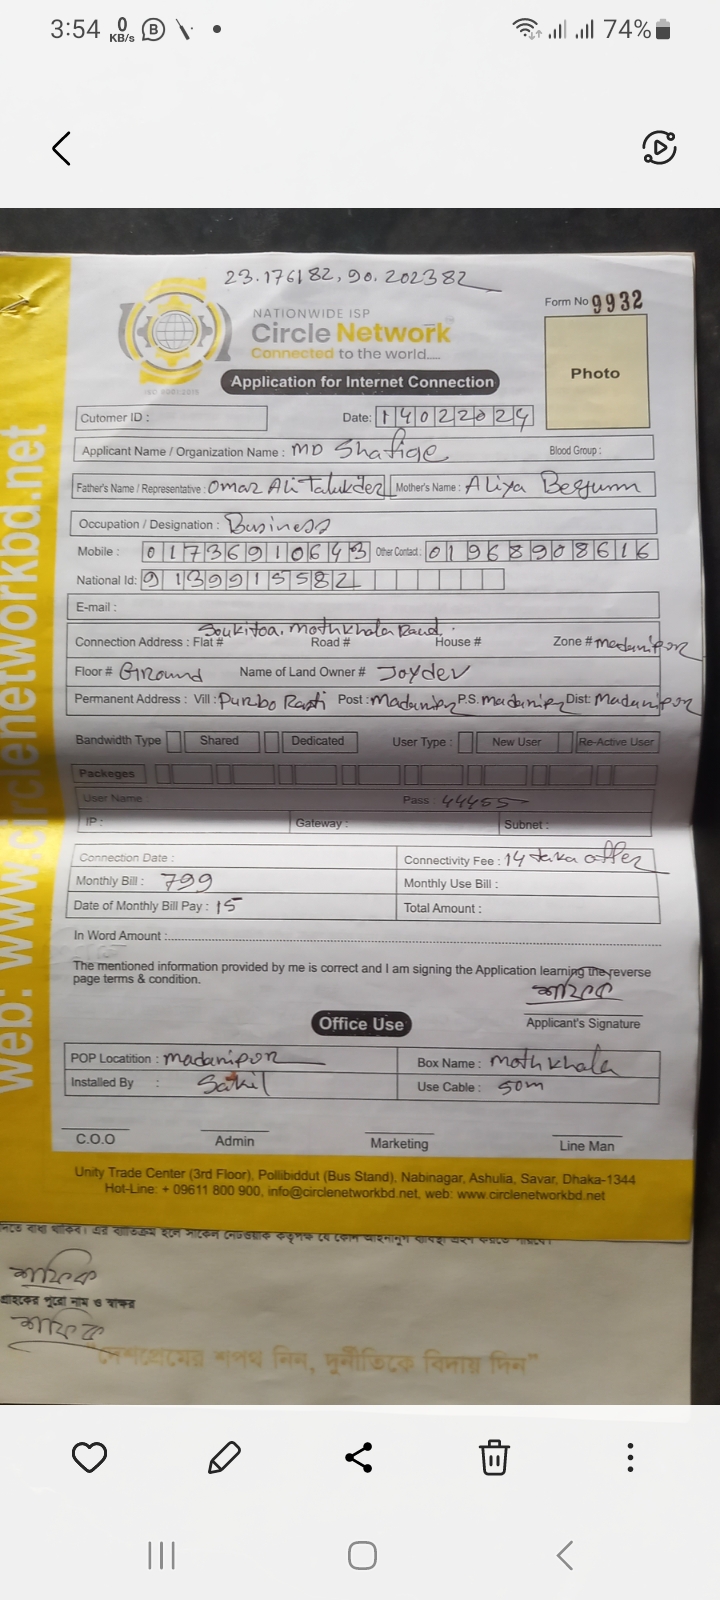 3:54 0 KB/s B 74%
23.176182, 90.202382
NATIONWIDE ISP
Circle Network
Connected to the world....
ISO 9001:2015
Form No 9932
Photo
Application for Internet Connection
Cutomer ID : Date: 14022024
Applicant Name / Organization Name : MD Shafiqe Blood Group :
Father's Name / Representative : Omar Ali Talukder Mother's Name : Aliya Begum
Occupation / Designation : Business
Mobile : 01736910643 Other Contact : 01968908616
National Id: 9139915582
E-mail :
Connection Address : Flat # Road # House # Zone # madaripor
Moth khola Raud.
Floor # Ground Name of Land Owner # Joydev
Permanent Address : Vill : Purbo Rasti Post : Madaripor P.S. madaripor Dist: Madaripor
Bandwidth Type Shared Dedicated User Type : New User Re-Active User
Packeges
User Name Pass : 44455
IP : Gateway : Subnet :
Connection Date : Connectivity Fee : 14 taka offer
Monthly Bill : 799 Monthly Use Bill :
Date of Monthly Bill Pay : 15 Total Amount :
In Word Amount :
The mentioned information provided by me is correct and I am signing the Application learning the reverse
page terms & condition.
শফিক
Applicant's Signature
Office Use
POP Locatition : madaripor Box Name : moth khola
Installed By : Sakil Use Cable : 50m
C.O.O Admin Marketing Line Man
Unity Trade Center (3rd Floor), Pollibiddut (Bus Stand), Nabinagar, Ashulia, Savar, Dhaka-1344
Hot-Line: + 09611 800 900, info@circlenetworkbd.net, web: www.circlenetworkbd.net
web: www.circlenetworkbd.net
শফিক
গ্রাহকের পুরো নাম ও স্বাক্ষর
শফিক
"দেশপ্রেমের শপথ নিন, দুর্নীতিকে বিদায় দিন"